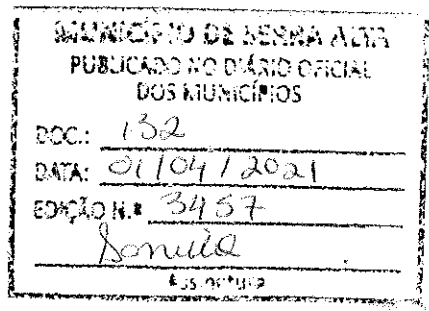 MUNICÍPIO DE SERRA ALTA
PUBLICADO NO DIÁRIO OFICIAL
DOS MUNICÍPIOS
DOC.: 132
DATA: 01/04/2021
EDIÇÃO N.º 3457
Assinatura